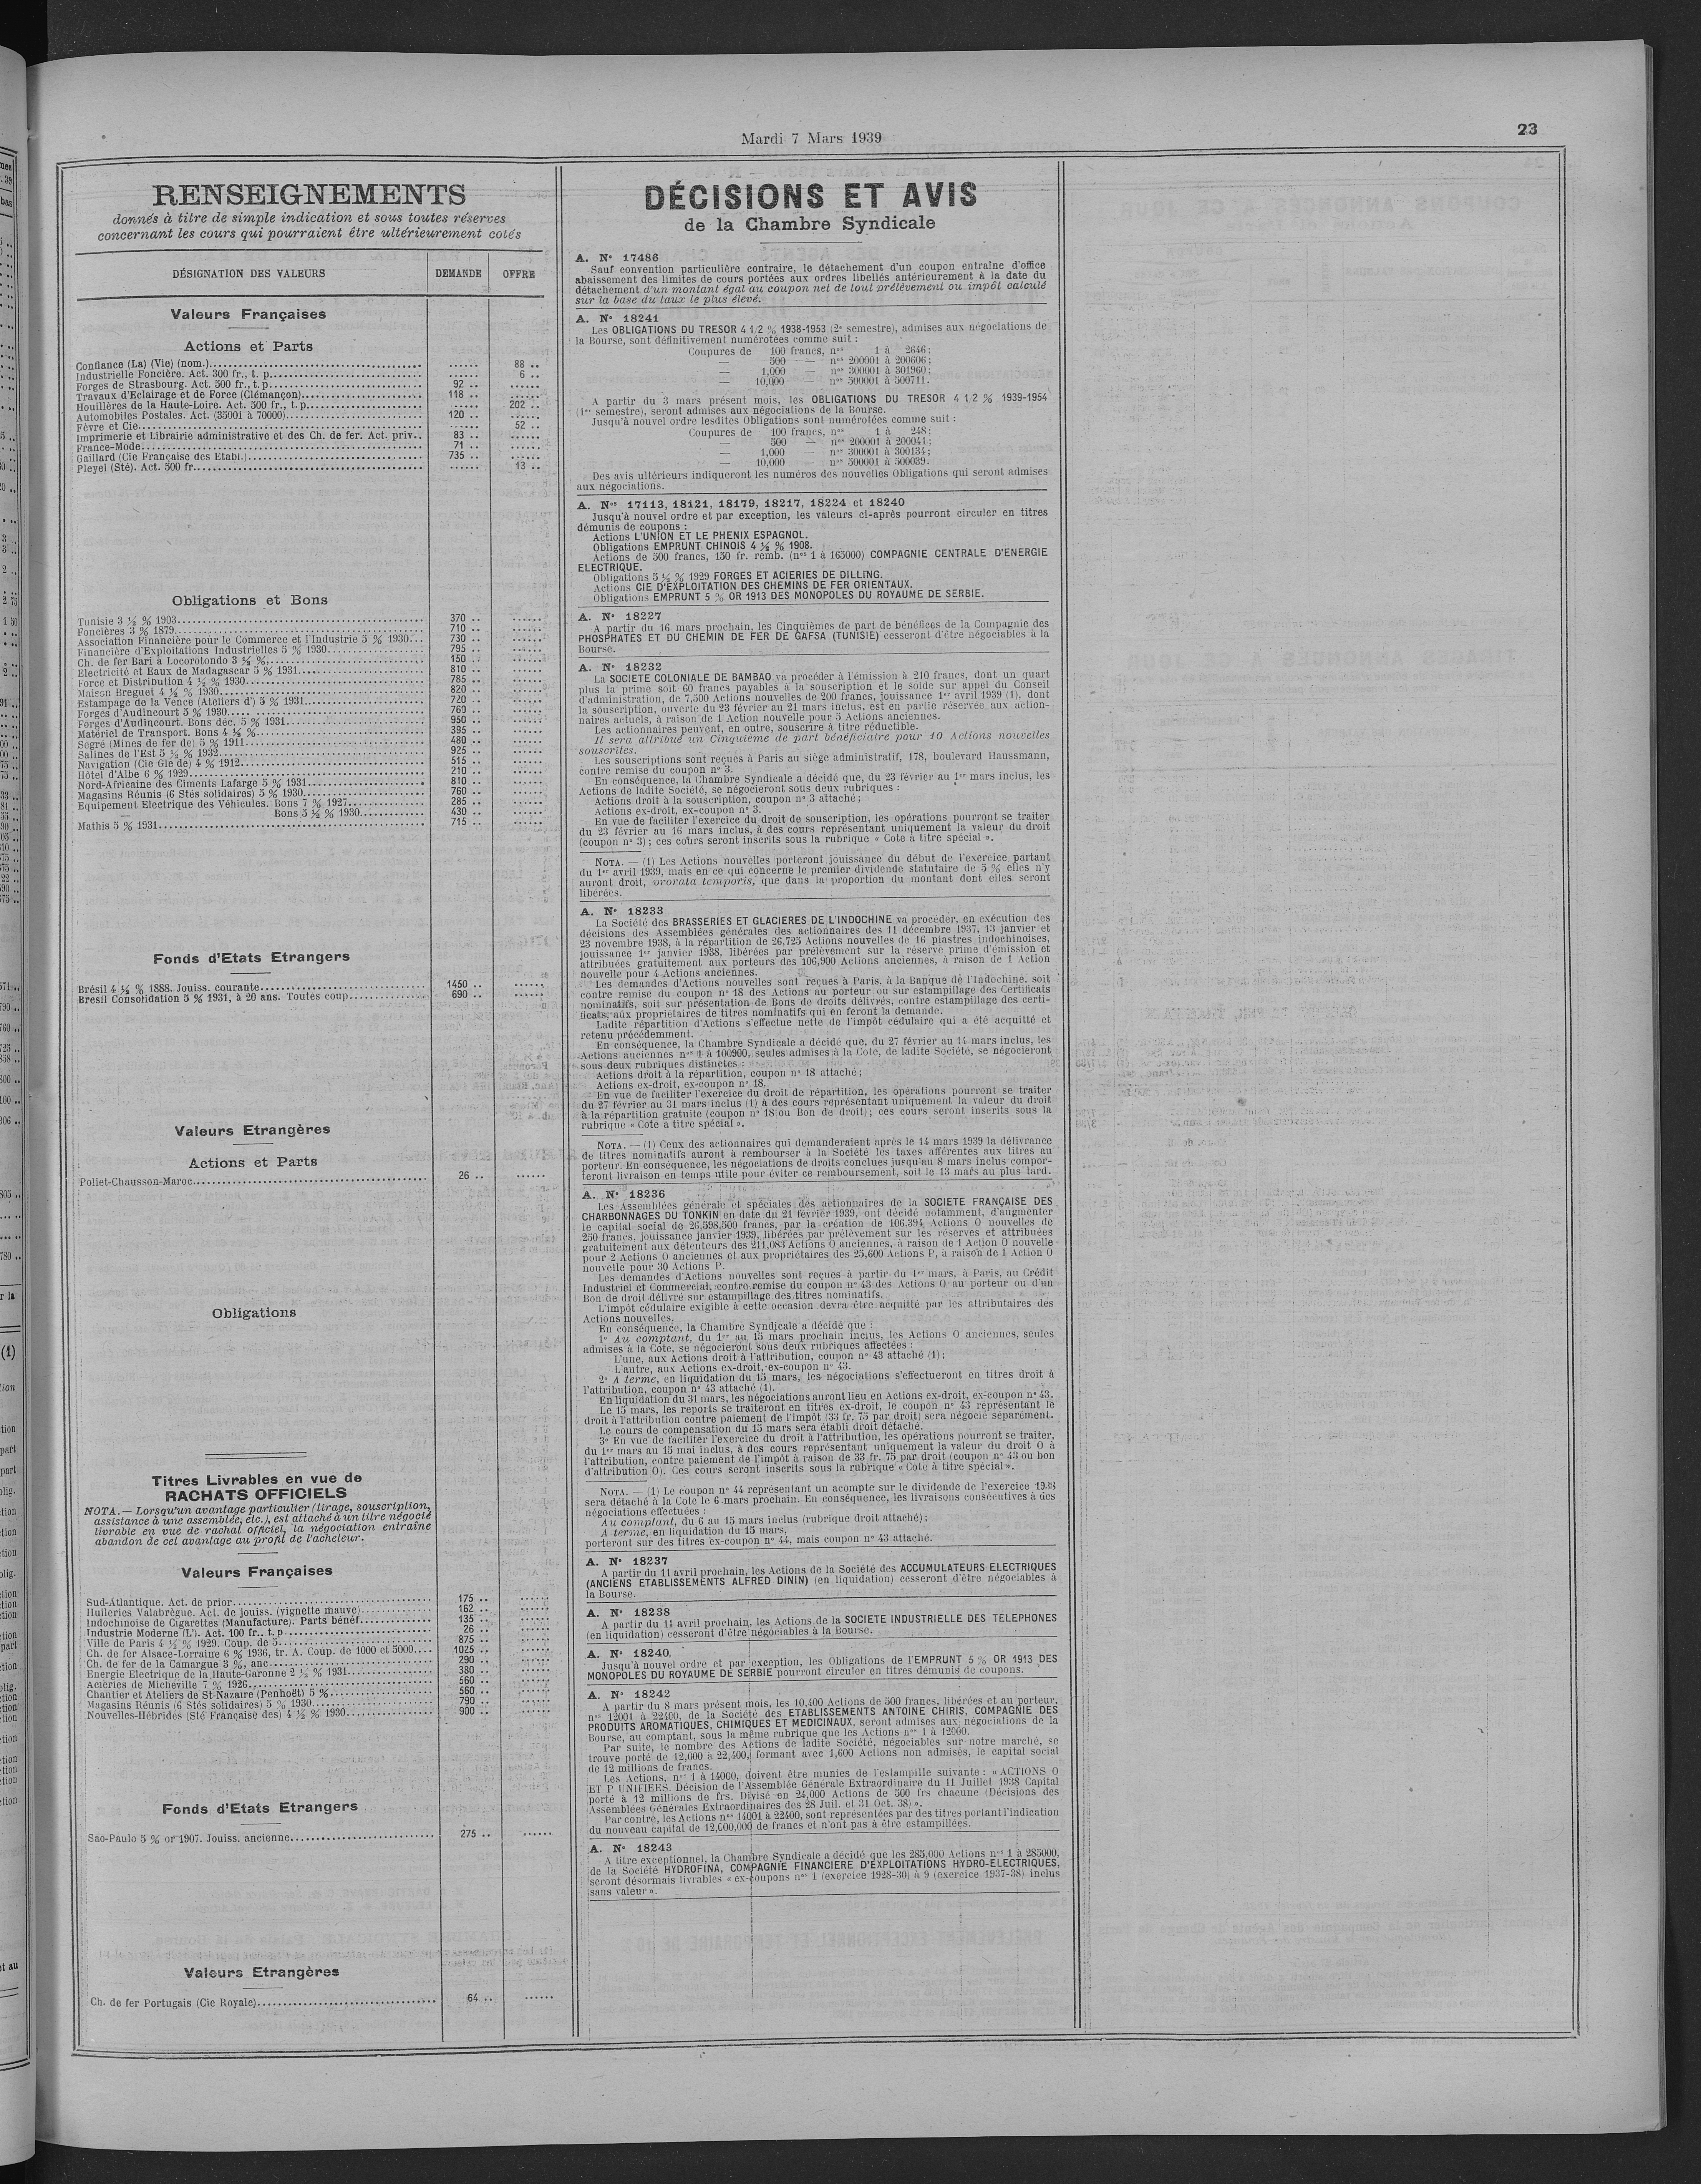 Mardi 7 Mars 1939
23
RENSEIGNEMENTS
donnés à titre de simple indication et sous toutes réserves
concernant les cours qui pourraient être ultérieurement cotés
DÉSIGNATION DES VALEURS DEMANDE OFFRE
Valeurs Françaises
Actions et Parts
Confiance (La) (Vie) (nom.) ...... 88 ..
Industrielle Foncière. Act. 300 fr., t. p. ...... 6 ..
Forges de Strasbourg. Act. 500 fr., t. p. 92 .. ......
Travaux d'Eclairage et de Force (Clémançon) 118 .. ......
Houillères de la Haute-Loire. Act. 500 fr., t. p. ...... 202 ..
Automobiles Postales. Act. (35001 à 70000) 120 .. ......
Fèvre et Cie ...... 52 ..
Imprimerie et Librairie administrative et des Ch. de fer. Act. priv.. 83 .. ......
France-Mode 71 .. ......
Gaillard (Cie Française des Etabl.) 735 .. ......
Pleyel (Sté). Act. 500 fr. ...... 13 ..
Obligations et Bons
Tunisie 3 ½ % 1903 370 .. ......
Foncières 3 % 1879 710 .. ......
Association Financière pour le Commerce et l'Industrie 5 % 1930 730 .. ......
Financière d'Exploitations Industrielles 5 % 1930 795 .. ......
Ch. de fer Bari à Locorotondo 3 ½ % 150 .. ......
Electricité et Eaux de Madagascar 5 % 1931 810 .. ......
Force et Distribution 4 ½ % 1930 785 .. ......
Maison Breguet 4 ½ % 1930 820 .. ......
Estampage de la Vence (Ateliers d') 5 % 1931 720 .. ......
Forges d'Audincourt 5 % 1930 760 .. ......
Forges d'Audincourt. Bons déc. 5 % 1931 950 .. ......
Matériel de Transport. Bons 4 ½ % 395 .. ......
Segré (Mines de fer de) 5 % 1911 480 .. ......
Salines de l'Est 5 ½ % 1932 925 .. ......
Navigation (Cie Gle de) 4 % 1912 515 .. ......
Hôtel d'Albe 6 % 1929 210 .. ......
Nord-Africaine des Ciments Lafarge 5 % 1931 810 .. ......
Magasins Réunis (6 Stés solidaires) 5 % 1930 760 .. ......
Equipement Electrique des Véhicules. Bons 7 % 1927 285 .. ......
— — Bons 5 ½ % 1930 430 .. ......
Mathis 5 % 1931 715 .. ......
Fonds d'Etats Etrangers
Brésil 4 ½ % 1888. Jouiss. courante 1450 .. ......
Brésil Consolidation 5 % 1931, à 20 ans. Toutes coup. 690 .. ......
Valeurs Etrangères
Actions et Parts
Poliet-Chausson-Maroc 26 .. ......
Obligations
Titres Livrables en vue de
RACHATS OFFICIELS
NOTA. — Lorsqu'un avantage particulier (tirage, souscription,
assistance à une assemblée, etc.), est attaché à un titre négocié
livrable en vue de rachat officiel, la négociation entraîne
abandon de cet avantage au profit de l'acheteur.
Valeurs Françaises
Sud-Atlantique. Act. de prior. 175 .. ......
Huileries Valabrègue. Act. de jouiss. (vignette mauve) 162 .. ......
Indochinoise de Cigarettes (Manufacture). Parts bénéf. 135 .. ......
Industrie Moderne (L'). Act. 100 fr., t. p. 26 .. ......
Ville de Paris 4 ½ % 1929. Coup. de 5 875 .. ......
Ch. de fer Alsace-Lorraine 6 % 1936, tr. A. Coup. de 1000 et 5000 1025 .. ......
Ch. de fer de la Camargue 3 %, anc. 290 .. ......
Energie Electrique de la Haute-Garonne 2 ½ % 1931 380 .. ......
Aciéries de Micheville 7 % 1926 560 .. ......
Chantier et Ateliers de St-Nazaire (Penhoët) 5 % 560 .. ......
Magasins Réunis (6 Stés solidaires) 5 % 1930 790 .. ......
Nouvelles-Hébrides (Sté Française des) 4 ½ % 1930 900 .. ......
Fonds d'Etats Etrangers
Sao-Paulo 5 % or 1907. Jouiss. ancienne 275 .. ......
Valeurs Etrangères
Ch. de fer Portugais (Cie Royale) 64 .. ......
DÉCISIONS ET AVIS
de la Chambre Syndicale
A. N° 17486
Sauf convention particulière contraire, le détachement d'un coupon entraîne d'office
abaissement des limites de cours portées aux ordres libellés antérieurement à la date du
détachement d'un montant égal au coupon net de tout prélèvement ou impôt calculé
sur la base du taux le plus élevé.
A. N° 18241
Les OBLIGATIONS DU TRESOR 4 1/2 % 1938-1953 (2e semestre), admises aux négociations de
la Bourse, sont définitivement numérotées comme suit :
Coupures de 100 francs, nos 1 à 2646;
— 500 — nos 200001 à 200606;
— 1,000 — nos 300001 à 301960;
— 10,000 — nos 500001 à 500711.
A partir du 3 mars présent mois, les OBLIGATIONS DU TRESOR 4 1/2 % 1939-1954
(1er semestre), seront admises aux négociations de la Bourse.
Jusqu'à nouvel ordre lesdites Obligations sont numérotées comme suit :
Coupures de 100 francs, nos 1 à 248;
— 500 — nos 200001 à 200041;
— 1,000 — nos 300001 à 300134;
— 10,000 — nos 500001 à 500039.
Des avis ultérieurs indiqueront les numéros des nouvelles Obligations qui seront admises
aux négociations.
A. Nos 17113, 18121, 18179, 18217, 18224 et 18240
Jusqu'à nouvel ordre et par exception, les valeurs ci-après pourront circuler en titres
démunis de coupons :
Actions L'UNION ET LE PHENIX ESPAGNOL.
Obligations EMPRUNT CHINOIS 4 ½ % 1908.
Actions de 500 francs, 150 fr. remb. (nos 1 à 165000) COMPAGNIE CENTRALE D'ENERGIE
ELECTRIQUE.
Obligations 5 ½ % 1929 FORGES ET ACIERIES DE DILLING.
Actions CIE D'EXPLOITATION DES CHEMINS DE FER ORIENTAUX.
Obligations EMPRUNT 5 % OR 1913 DES MONOPOLES DU ROYAUME DE SERBIE.
A. N° 18227
A partir du 16 mars prochain, les Cinquièmes de part de bénéfices de la Compagnie des
PHOSPHATES ET DU CHEMIN DE FER DE GAFSA (TUNISIE) cesseront d'être négociables à la
Bourse.
A. N° 18232
La SOCIETE COLONIALE DE BAMBAO va procéder à l'émission à 210 francs, dont un quart
plus la prime soit 60 francs payables à la souscription et le solde sur appel du Conseil
d'administration, de 7,500 Actions nouvelles de 200 francs, jouissance 1er avril 1939 (1), dont
la souscription, ouverte du 23 février au 21 mars inclus, est en partie réservée aux action-
naires actuels, à raison de 1 Action nouvelle pour 5 Actions anciennes.
Les actionnaires peuvent, en outre, souscrire à titre réductible.
Il sera attribué un Cinquième de part bénéficiaire pour 10 Actions nouvelles
souscrites.
Les souscriptions sont reçues à Paris au siège administratif, 178, boulevard Haussmann,
contre remise du coupon n° 3.
En conséquence, la Chambre Syndicale a décidé que, du 23 février au 1er mars inclus, les
Actions de ladite Société, se négocieront sous deux rubriques :
Actions droit à la souscription, coupon n° 3 attaché;
Actions ex-droit, ex-coupon n° 3.
En vue de faciliter l'exercice du droit de souscription, les opérations pourront se traiter
du 23 février au 16 mars inclus, à des cours représentant uniquement la valeur du droit
(coupon n° 3) ; ces cours seront inscrits sous la rubrique « Cote à titre spécial ».
NOTA. — (1) Les Actions nouvelles porteront jouissance du début de l'exercice partant
du 1er avril 1939, mais en ce qui concerne le premier dividende statutaire de 5 % elles n'y
auront droit, prorata temporis, que dans la proportion du montant dont elles seront
libérées.
A. N° 18233
La Société des BRASSERIES ET GLACIERES DE L'INDOCHINE va procéder, en exécution des
décisions des Assemblées générales des actionnaires des 11 décembre 1937, 13 janvier et
23 novembre 1938, à la répartition de 26,725 Actions nouvelles de 16 piastres indochinoises,
jouissance 1er janvier 1938, libérées par prélèvement sur la réserve prime d'émission et
attribuées gratuitement aux porteurs des 106,900 Actions anciennes, à raison de 1 Action
nouvelle pour 4 Actions anciennes.
Les demandes d'Actions nouvelles sont reçues à Paris, à la Banque de l'Indochine, soit
contre remise du coupon n° 18 des Actions au porteur ou sur estampillage des Certificats
nominatifs, soit sur présentation de Bons de droits délivrés, contre estampillage des certi-
ficats, aux propriétaires de titres nominatifs qui en feront la demande.
Ladite répartition d'Actions s'effectue nette de l'impôt cédulaire qui a été acquitté et
retenu précédemment.
En conséquence, la Chambre Syndicale a décidé que, du 27 février au 14 mars inclus, les
Actions anciennes nos 1 à 106900, seules admises à la Cote, de ladite Société, se négocieront
sous deux rubriques distinctes :
Actions droit à la répartition, coupon n° 18 attaché;
Actions ex-droit, ex-coupon n° 18.
En vue de faciliter l'exercice du droit de répartition, les opérations pourront se traiter
du 27 février au 31 mars inclus (1) à des cours représentant uniquement la valeur du droit
à la répartition gratuite (coupon n° 18 ou Bon de droit); ces cours seront inscrits sous la
rubrique « Cote à titre spécial ».
NOTA. — (1) Ceux des actionnaires qui demanderaient après le 14 mars 1939 la délivrance
de titres nominatifs auront à rembourser à la Société les taxes afférentes aux titres au
porteur. En conséquence, les négociations de droits conclues jusqu'au 8 mars inclus compor-
teront livraison en temps utile pour éviter ce remboursement, soit le 13 mars au plus tard.
A. N° 18236
Les Assemblées générale et spéciales des actionnaires de la SOCIETE FRANÇAISE DES
CHARBONNAGES DU TONKIN en date du 21 février 1939, ont décidé notamment, d'augmenter
le capital social de 26,598,500 francs, par la création de 106,394 Actions O nouvelles de
250 francs, jouissance janvier 1939, libérées par prélèvement sur les réserves et attribuées
gratuitement aux détenteurs des 211,083 Actions O anciennes, à raison de 1 Action O nouvelle
pour 2 Actions O anciennes et aux propriétaires des 25,600 Actions P, à raison de 1 Action O
nouvelle pour 30 Actions P.
Les demandes d'Actions nouvelles sont reçues à partir du 1er mars, à Paris, au Crédit
Industriel et Commercial, contre remise du coupon n° 43 des Actions O au porteur ou d'un
Bon de droit délivré sur estampillage des titres nominatifs.
L'impôt cédulaire exigible à cette occasion devra être acquitté par les attributaires des
Actions nouvelles.
En conséquence, la Chambre Syndicale a décidé que :
1° Au comptant, du 1er au 15 mars prochain inclus, les Actions O anciennes, seules
admises à la Cote, se négocieront sous deux rubriques affectées :
L'une, aux Actions droit à l'attribution, coupon n° 43 attaché (1);
L'autre, aux Actions ex-droit, ex-coupon n° 43.
2° A terme, en liquidation du 15 mars, les négociations s'effectueront en titres droit à
l'attribution, coupon n° 43 attaché (1).
En liquidation du 31 mars, les négociations auront lieu en Actions ex-droit, ex-coupon n° 43.
Le 15 mars, les reports se traiteront en titres ex-droit, le coupon n° 43 représentant le
droit à l'attribution contre paiement de l'impôt (33 fr. 75 par droit) sera négocié séparément.
Le cours de compensation du 15 mars sera établi droit détaché.
3° En vue de faciliter l'exercice du droit à l'attribution, les opérations pourront se traiter,
du 1er mars au 15 mai inclus, à des cours représentant uniquement la valeur du droit O à
l'attribution, contre paiement de l'impôt à raison de 33 fr. 75 par droit (coupon n° 43 ou bon
d'attribution O). Ces cours seront inscrits sous la rubrique « Cote à titre spécial ».
NOTA. — (1) Le coupon n° 44 représentant un acompte sur le dividende de l'exercice 1938
sera détaché à la Cote le 6 mars prochain. En conséquence, les livraisons consécutives à des
négociations effectuées :
Au comptant, du 6 au 15 mars inclus (rubrique droit attaché);
A terme, en liquidation du 15 mars,
porteront sur des titres ex-coupon n° 44, mais coupon n° 43 attaché.
A. N° 18237
A partir du 11 avril prochain, les Actions de la Société des ACCUMULATEURS ELECTRIQUES
(ANCIENS ETABLISSEMENTS ALFRED DININ) (en liquidation) cesseront d'être négociables à
la Bourse.
A. N° 18238
A partir du 11 avril prochain, les Actions de la SOCIETE INDUSTRIELLE DES TELEPHONES
(en liquidation) cesseront d'être négociables à la Bourse.
A. N° 18240
Jusqu'à nouvel ordre et par exception, les Obligations de l'EMPRUNT 5 % OR 1913 DES
MONOPOLES DU ROYAUME DE SERBIE pourront circuler en titres démunis de coupons.
A. N° 18242
A partir du 8 mars présent mois, les 10,400 Actions de 500 francs, libérées et au porteur,
nos 12001 à 22400, de la Société des ETABLISSEMENTS ANTOINE CHIRIS, COMPAGNIE DES
PRODUITS AROMATIQUES, CHIMIQUES ET MEDICINAUX, seront admises aux négociations de la
Bourse, au comptant, sous la même rubrique que les Actions nos 1 à 12000.
Par suite, le nombre des Actions de ladite Société, négociables sur notre marché, se
trouve porté de 12,000 à 22,400, formant avec 1,600 Actions non admises, le capital social
de 12 millions de francs.
Les Actions, nos 1 à 14000, doivent être munies de l'estampille suivante : « ACTIONS O
ET P UNIFIEES. Décision de l'Assemblée Générale Extraordinaire du 11 Juillet 1938 Capital
porté à 12 millions de frs. Divisé en 24,000 Actions de 500 frs chacune (Décisions des
Assemblées Générales Extraordinaires des 28 Juil. et 31 Oct. 38) ».
Par contre, les Actions nos 14001 à 22400, sont représentées par des titres portant l'indication
du nouveau capital de 12,000,000 de francs et n'ont pas à être estampillées.
A. N° 18243
A titre exceptionnel, la Chambre Syndicale a décidé que les 285,000 Actions nos 1 à 285000,
de la Société HYDROFINA, COMPAGNIE FINANCIERE D'EXPLOITATIONS HYDRO-ELECTRIQUES,
seront désormais livrables « ex-coupons nos 1 (exercice 1928-30) à 9 (exercice 1937-38) inclus
sans valeur ».